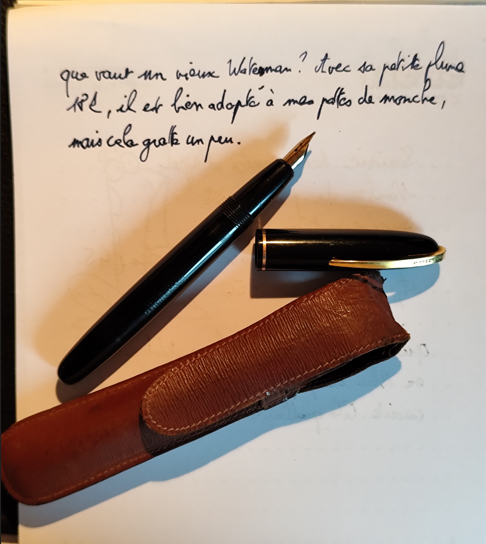 que vaut un vieux Waterman? Avec sa petite plume
18C, il est bien adapté à mes pattes de mouche,
mais cela gratte un peu.